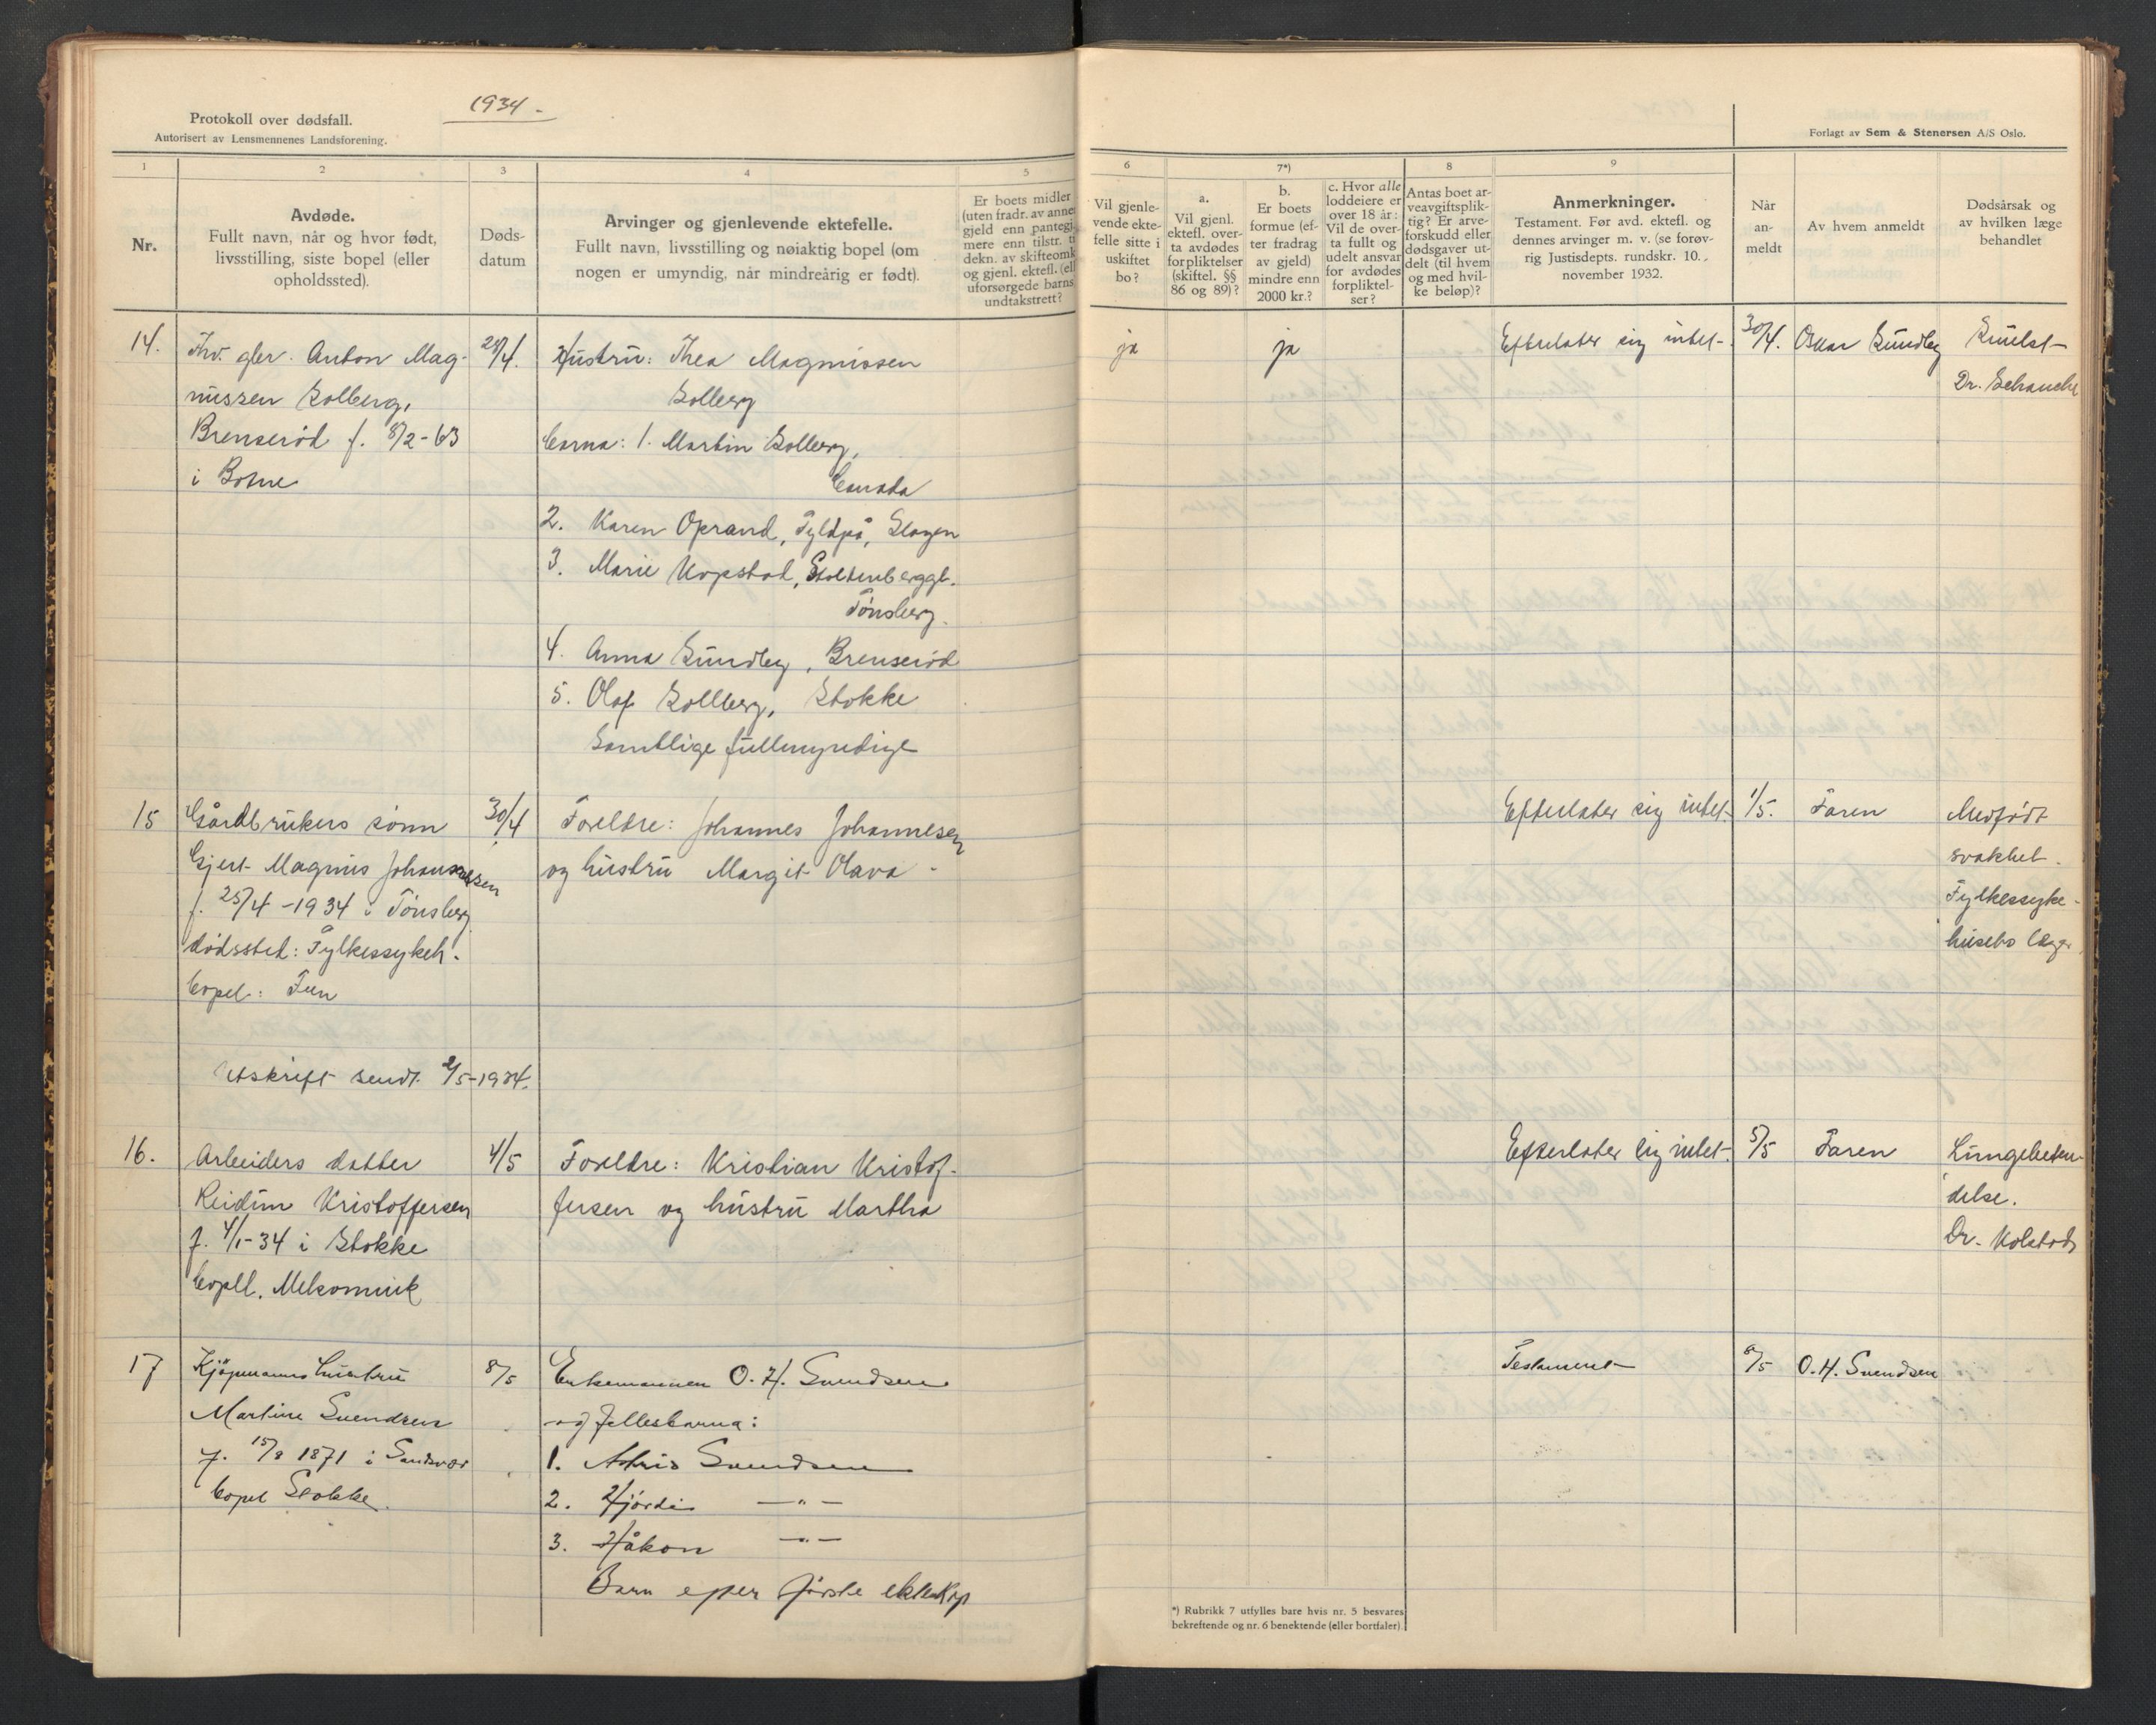 1934 -
Protokoll over dødsfall.
Autorisert av Lensmennenes Landsforening.
Forlagt av Sem & Stenersen A/S Oslo.
1 2 3 4 5 6 7*) 8 9
Nr.
Avdøde.
Fullt navn, når og hvor født,
livsstilling, siste bopel (eller
opholdssted).
Døds-
datum
Arvinger og gjenlevende ektefelle.
Fullt navn, livsstilling og nøiaktig bopel (om
nogen er umyndig, når mindreårig er født).
Er boets midler
(uten fradr. av annen
gjeld enn pantegj.
mere enn tilstr. ti
dekn. av skifteomk
og gjenl. ektefl. (ell
uforsørgede barns
undtakstrett?
Vil gjenle-
vende ekte-
felle sitte i
uskiftet
bo?
a.
Vil gjenl.
ektefl. over-
ta avdødes
forpliktelser
(skiftel. §§
86 og 89)?
b.
Er boets
formue (ef-
ter fradrag
av gjeld)
mindre enn
2000 kr.?
c. Hvor alle
loddeiere er
over 18 år:
Vil de over-
ta fullt og
udelt ansvar
for avdødes
forpliktel-
ser?
Antas boet ar-
veavgiftsplik-
tig? Er arve-
forskudd eller
dødsgaver ut-
delt (til hvem
og med hvil-
ke beløp)?
Anmerkninger.
Testament. Før avd. ektefl. og
dennes arvinger m. v. (se forøv-
rig Justisdepts. rundskr. 10.
november 1932.
Når
an-
meldt
Av hvem anmeldt
Dødsårsak og
av hvilken læge
behandlet
14.
Fhv. gbr. Anton Mag-
nussen Solberg,
Brenserød f. 8/2-63
i Botne
28/4.
Hustru: Thea Magnussen
Solberg
barna: 1. Martin Solberg,
Canada
2. Karen Oprand, Tyldpå, Slagen
3. Marie Kopstad, Stoltenberggt.
Tønsberg.
4. Anna Sundby, Brenserød
5. Olaf Sollberg, Stokke
Samtlige fullmyndige
ja
ja
Efterlater sig intet -
30/4.
Oskar Sundby
Svulst -
Dr. Schanche
15
Gårdbrukers sønn
Gjert Magnus Johannessen
f. 25/4 -1934 i Tønsberg
dødssted: Fylkessykeh.
bopel: Fen
30/4
Foreldre: Johannes Johannesen
og hustru Margit Olava -
Efterlater sig intet -
1/5.
Faren
Medfødt
svakhet.
Fylkessyke-
husets læger
Utskrift sendt 2/5-1934.
16.
Arbeiders datter
Reidun Kristoffersen
f. 4/1-34 i Stokke
bopll. Melsomvik
4/5
Foreldre: Kristian Kristof-
fersen og hustru Martha
Efterlater sig intet -
5/5
Faren
Lungebeten-
delse.
Dr. Kolstad
17
Kjøpmanns hustru
Martine Svendsen
f. 15/8 1871 i Sandsvær
bopel Stokke.
8/5
Enkemannen O. H. Svendsen
og fellesbarna:
1. Astrid Svendsen
2. Hjørdis — " —
3. Håkon — " —
Barn efter første ekteskap
Testament
8/5
O. H. Svendsen
*) Rubrikk 7 utfylles bare hvis nr. 5 besvares
bekreftende og nr. 6 benektende (eller bortfaler).